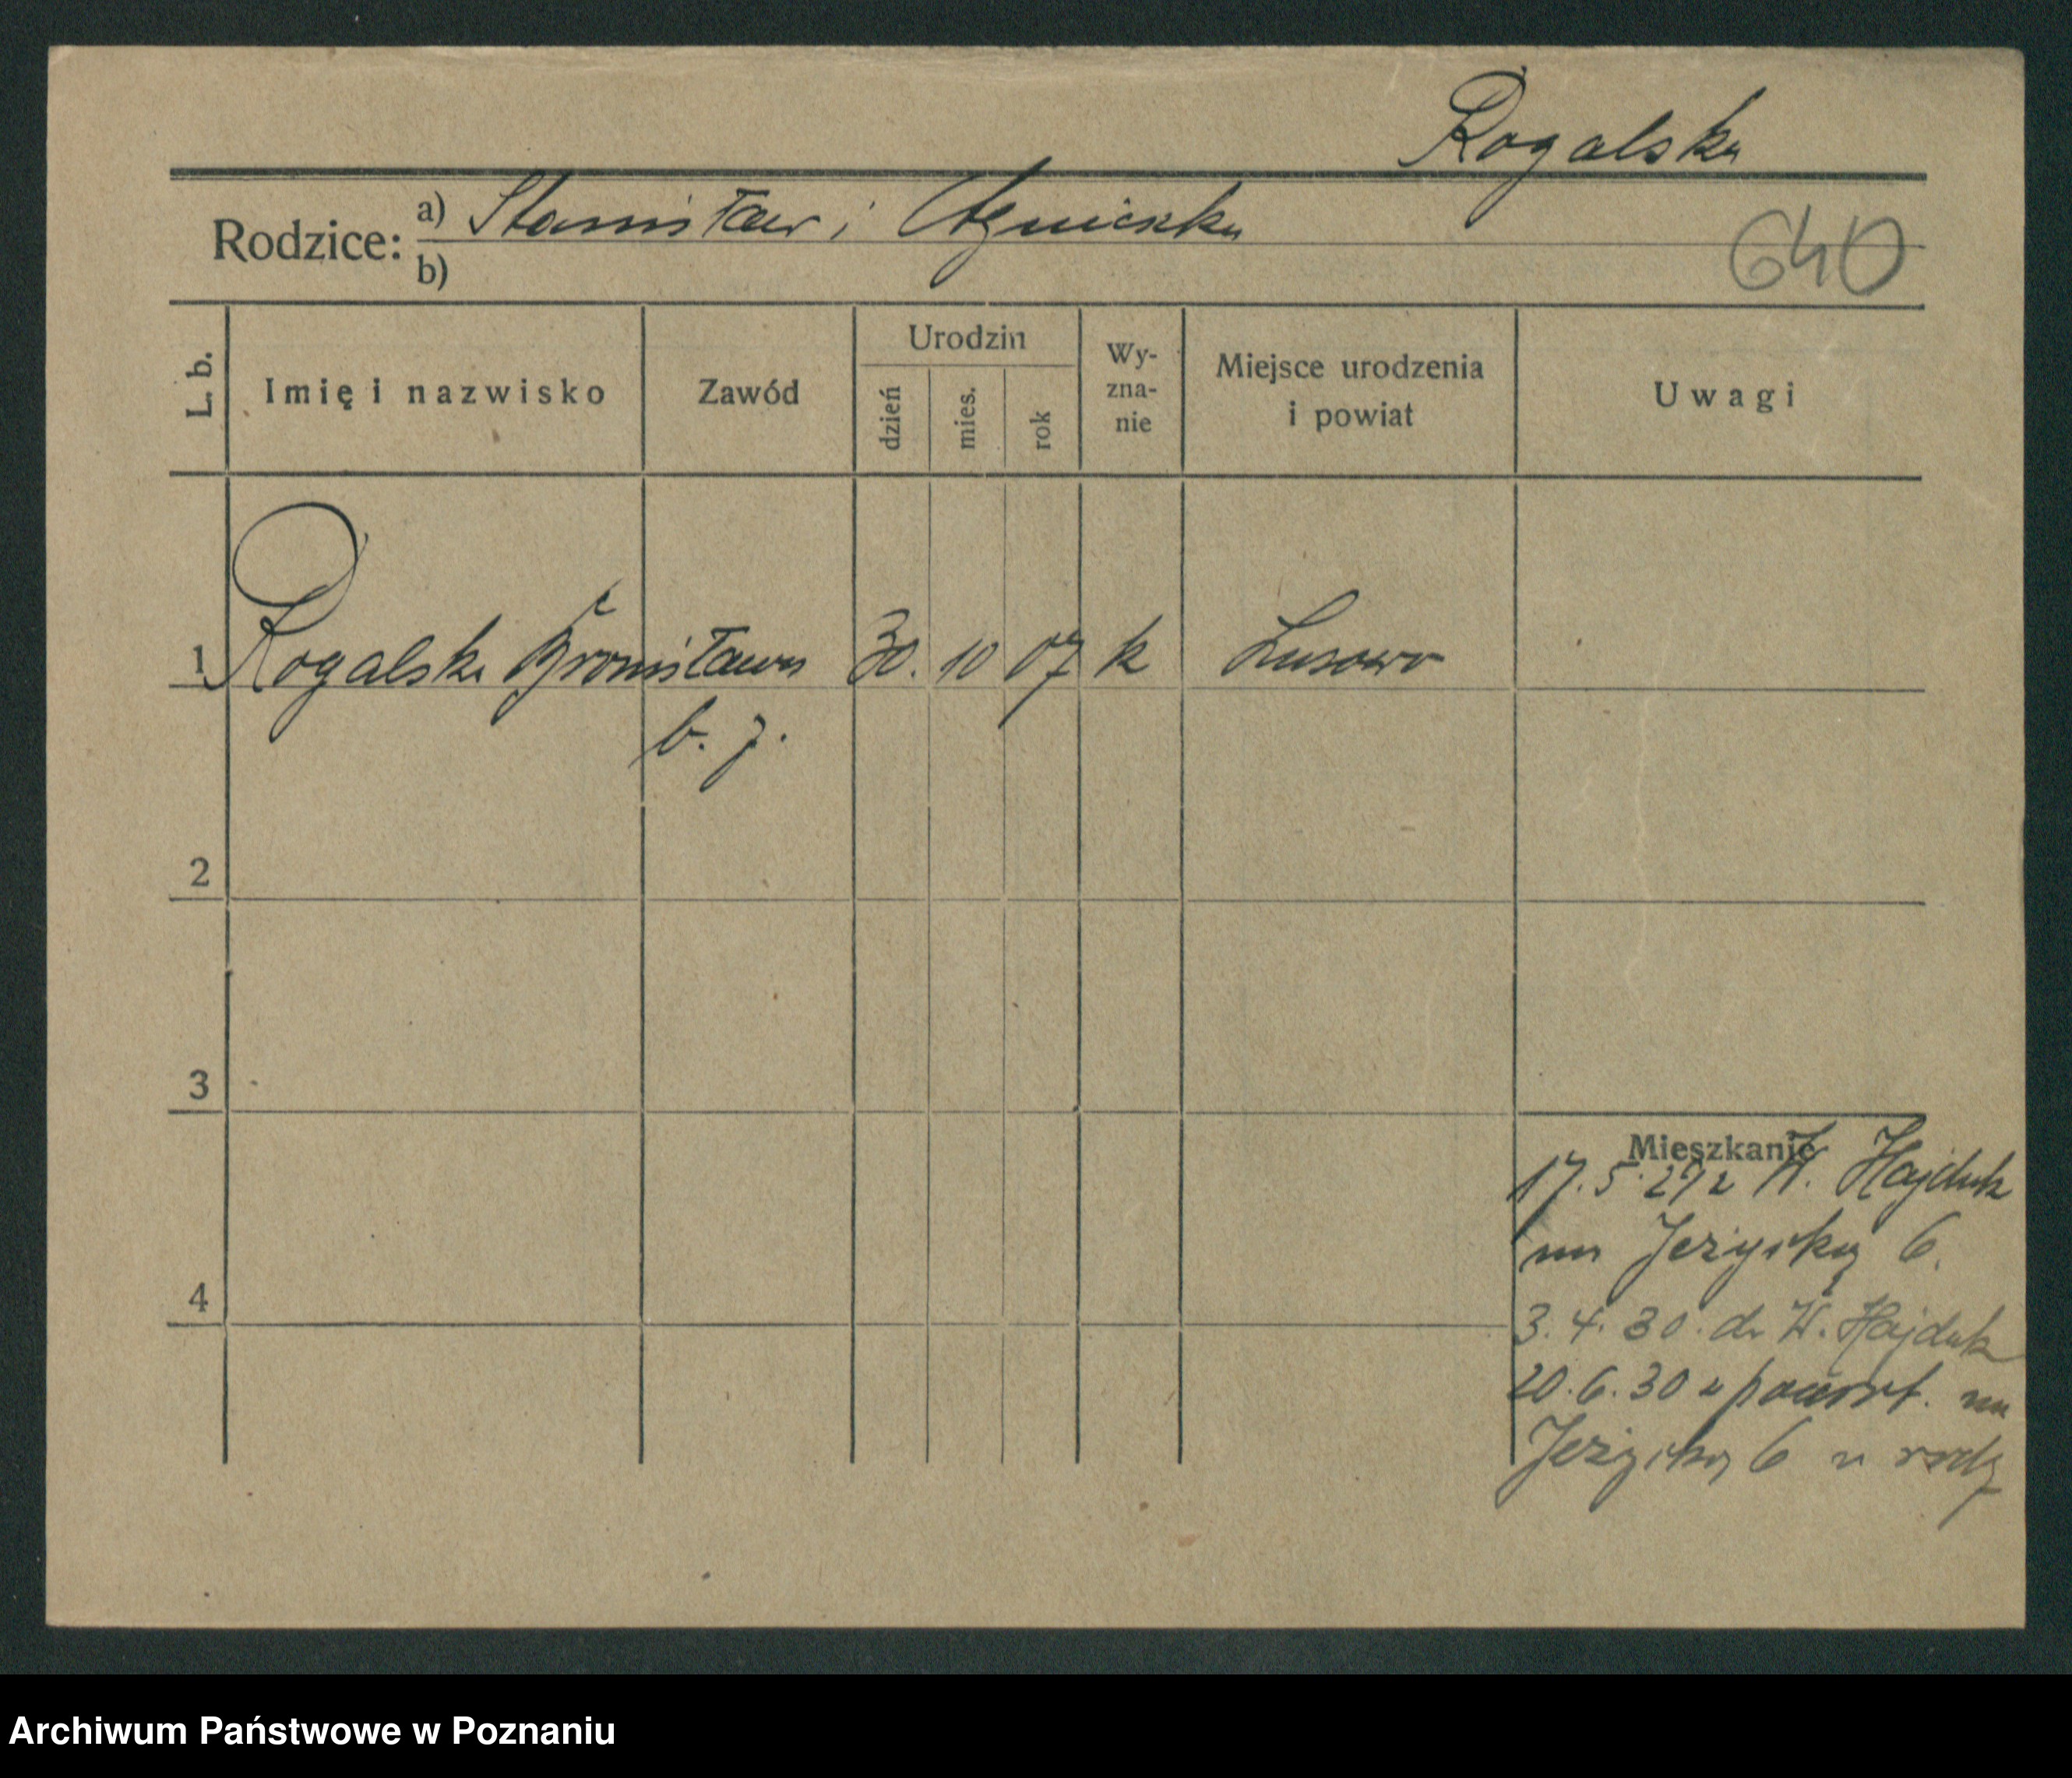 Rogalska
Rodzice: a) Stanisław i Agnieszka
b)
640
L. b. Imię i nazwisko Zawód Urodzin dzień mies. rok Wy-zna-nie Miejsce urodzenia i powiat Uwagi
1 Rogalska Bronisława 30. 10 07 k Lusowo
b. z.
2
3
Mieszkanie
17. 5. 29 z W. Hajduk
na Jeżycką 6.
4
3. 4. 30. do W. Hajduk
20. 6. 30 z powrot. na
Jeżycką 6 u rodz
Archiwum Państwowe w Poznaniu